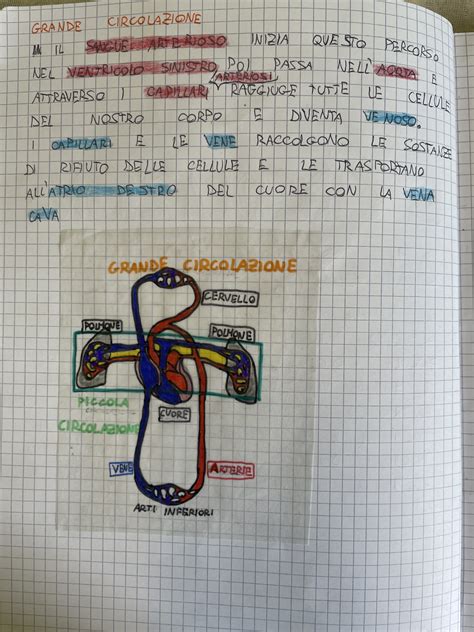 GRANDE CIRCOLAZIONE
IL SANGUE ARTERIOSO INIZIA QUESTO PERCORSO
NEL VENTRICOLO SINISTRO POI PASSA NELL'AORTA E
ARTERIOSI
ATTRAVERSO I CAPILLARI RAGGIUGE TUTTE LE CELLULE
DEL NOSTRO CORPO E DIVENTA VENOSO.
I CAPILLARI E LE VENE RACCOLGONO LE SOSTANZE
DI RIFIUTO DELLE CELLULE E LE TRASPORTANO
ALL'ATRIO DESTRO DEL CUORE CON LA VENA
CAVA
GRANDE CIRCOLAZIONE
CERVELLO
POLMONE
POLMONE
PICCOLA
CIRCOLAZIONE
CUORE
VENE
ARTERIE
ARTI INFERIORI